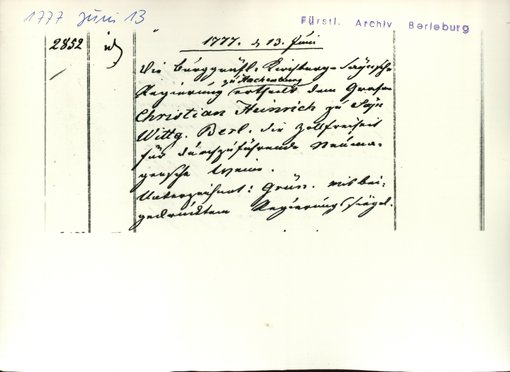 1777 Juni 13
Fürstl. Archiv Berleburg
2852
1777. d 13. Juni
Die Burggräfl. Kirchberg-Saynsche
zu Hachenburg
Regierung ertheilt dem Grafen
Christian Heinrich zu Sayn
Wittg. Berl. die Zollfreiheit
für durchzuführende Neuma-
gensche Weine.
Unterzeichnet: Grün. mit bei-
gedrücktem Regierungssiegel.